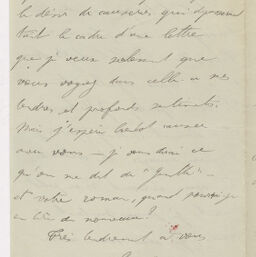 le désir de causeries, qui dépassent
tout le cadre d'une lettre
que je veux seulement que
vous voyez dans celle-ci mes
tendres et profonds sentiments.
Mais j'espère bientôt causer
avec vous — je vous dirai ce
qu'on me dit du "Goulth" —
et votre roman, quand pourrai-je
en lire de nouveau ?
Très tendrement à vous